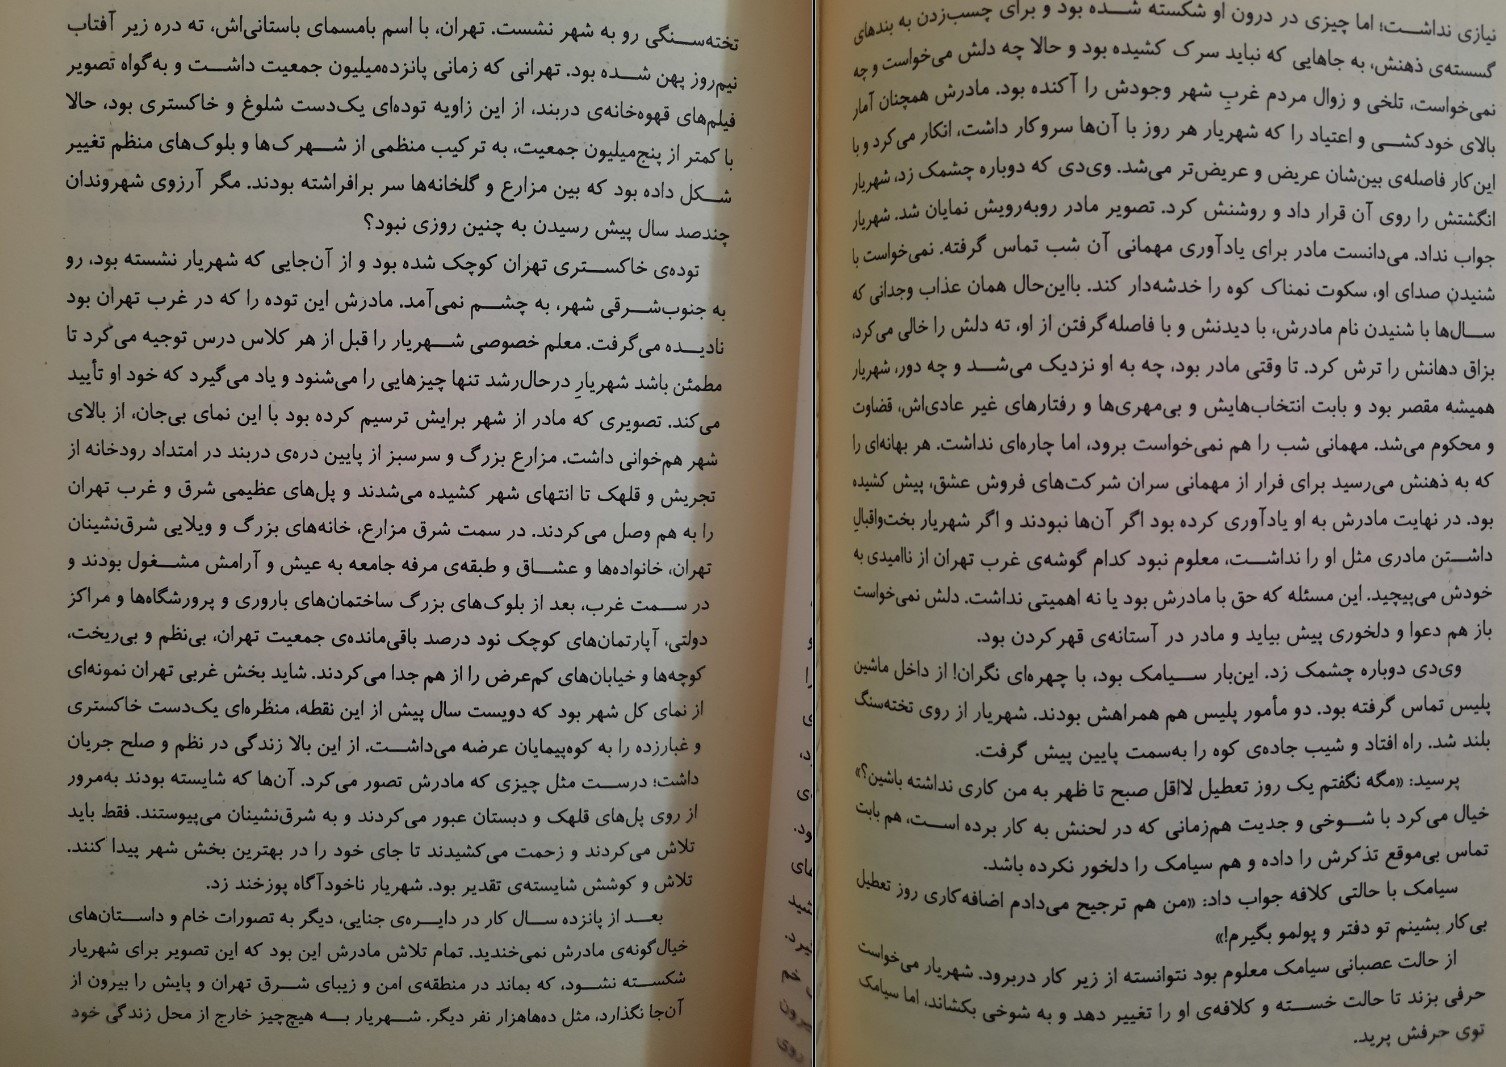 تخته‌سنگی رو به شهر نشست. تهران، با اسم بامسمای باستانی‌اش، ته دره زیر آفتاب
نیم‌روز پهن شده بود. تهرانی که زمانی پانزده‌میلیون جمعیت داشت و به‌گواه تصویر
فیلم‌های قهوه‌خانه‌ی دربند، از این زاویه توده‌ای یک‌دست شلوغ و خاکستری بود، حالا
با کمتر از پنج‌میلیون جمعیت، به ترکیب منظمی از شهرک‌ها و بلوک‌های منظم تغییر
شکل داده بود که بین مزارع و گلخانه‌ها سر برافراشته بودند. مگر آرزوی شهروندان
چندصد سال پیش رسیدن به چنین روزی نبود؟
توده‌ی خاکستری تهران کوچک شده بود و از آن‌جایی که شهریار نشسته بود، رو
به جنوب‌شرقی شهر، به چشم نمی‌آمد. مادرش این توده را که در غرب تهران بود
نادیده می‌گرفت. معلم خصوصی شهریار را قبل از هر کلاس درس توجیه می‌کرد تا
مطمئن باشد شهریارِ درحال‌رشد تنها چیزهایی را می‌شنود و یاد می‌گیرد که خود او تأیید
می‌کند. تصویری که مادر از شهر برایش ترسیم کرده بود با این نمای بی‌جان، از بالای
شهر هم‌خوانی داشت. مزارع بزرگ و سرسبز از پایین دره‌ی دربند در امتداد رودخانه از
تجریش و قلهک تا انتهای شهر کشیده می‌شدند و پل‌های عظیمی شرق و غرب تهران
را به هم وصل می‌کردند. در سمت شرق مزارع، خانه‌های بزرگ و ویلایی شرق‌نشینان
تهران، خانواده‌ها و عشاق و طبقه‌ی مرفه جامعه به عیش و آرامش مشغول بودند و
در سمت غرب، بعد از بلوک‌های بزرگ ساختمان‌های باروری و پرورشگاه‌ها و مراکز
دولتی، آپارتمان‌های کوچک نود درصد باقی‌مانده‌ی جمعیت تهران، بی‌نظم و بی‌ریخت،
کوچه‌ها و خیابان‌های کم‌عرض را از هم جدا می‌کردند. شاید بخش غربی تهران نمونه‌ای
از نمای کل شهر بود که دویست سال پیش از این نقطه، منظره‌ای یک‌دست خاکستری
و غبارزده را به کوه‌پیمایان عرضه می‌داشت. از این بالا زندگی در نظم و صلح جریان
داشت؛ درست مثل چیزی که مادرش تصور می‌کرد. آن‌ها که شایسته بودند به‌مرور
از روی پل‌های قلهک و دبستان عبور می‌کردند و به شرق‌نشینان می‌پیوستند. فقط باید
تلاش می‌کردند و زحمت می‌کشیدند تا جای خود را در بهترین بخش شهر پیدا کنند.
تلاش و کوشش شایسته‌ی تقدیر بود. شهریار ناخودآگاه پوزخند زد.
بعد از پانزده سال کار در دایره‌ی جنایی، دیگر به تصورات خام و داستان‌های
خیال‌گونه‌ی مادرش نمی‌خندید. تمام تلاش مادرش این بود که این تصویر برای شهریار
شکسته نشود، که بماند در منطقه‌ی امن و زیبای شرق تهران و پایش را بیرون از
آن‌جا نگذارد، مثل ده‌هاهزار نفر دیگر. شهریار به هیچ‌چیز خارج از محل زندگی خود
نیازی نداشت؛ اما چیزی در درون او شکسته شده بود و برای چسب‌زدن به بندهای
گسسته‌ی ذهنش، به جاهایی که نباید سرک کشیده بود و حالا چه دلش می‌خواست و چه
نمی‌خواست، تلخی و زوال مردم غربِ شهر وجودش را آکنده بود. مادرش همچنان آمار
بالای خودکشی و اعتیاد را که شهریار هر روز با آن‌ها سروکار داشت، انکار می‌کرد و با
این‌کار فاصله‌ی بین‌شان عریض و عریض‌تر می‌شد. وی‌دی که دوباره چشمک زد، شهریار
انگشتش را روی آن قرار داد و روشنش کرد. تصویر مادر روبه‌رویش نمایان شد. شهریار
جواب نداد. می‌دانست مادر برای یادآوری مهمانی آن شب تماس گرفته. نمی‌خواست با
شنیدن صدای او، سکوت نمناک کوه را خدشه‌دار کند. بااین‌حال همان عذاب وجدانی که
سال‌ها با شنیدن نام مادرش، با دیدنش و با فاصله‌گرفتن از او، ته دلش را خالی می‌کرد،
بزاق دهانش را ترش کرد. تا وقتی مادر بود، چه به او نزدیک می‌شد و چه دور، شهریار
همیشه مقصر بود و بابت انتخاب‌هایش و بی‌مهری‌ها و رفتارهای غیر عادی‌اش، قضاوت
و محکوم می‌شد. مهمانی شب را هم نمی‌خواست برود، اما چاره‌ای نداشت. هر بهانه‌ای را
که به ذهنش می‌رسید برای فرار از مهمانی سران شرکت‌های فروش عشق، پیش کشیده
بود. در نهایت مادرش به او یادآوری کرده بود اگر آن‌ها نبودند و اگر شهریار بخت‌واقبالِ
داشتن مادری مثل او را نداشت، معلوم نبود کدام گوشه‌ی غرب تهران از ناامیدی به
خودش می‌پیچید. این مسئله که حق با مادرش بود یا نه اهمیتی نداشت. دلش نمی‌خواست
باز هم دعوا و دلخوری پیش بیاید و مادر در آستانه‌ی قهرکردن بود.
وی‌دی دوباره چشمک زد. این‌بار سیامک بود، با چهره‌ای نگران! از داخل ماشین
پلیس تماس گرفته بود. دو مأمور پلیس هم همراهش بودند. شهریار از روی تخته‌سنگ
بلند شد. راه افتاد و شیب جاده‌ی کوه را به‌سمت پایین پیش گرفت.
پرسید: «مگه نگفتم یک روز تعطیل لااقل صبح تا ظهر به من کاری نداشته باشین؟»
خیال می‌کرد با شوخی و جدیت هم‌زمانی که در لحنش به کار برده است، هم بابت
تماس بی‌موقع تذکرش را داده و هم سیامک را دلخور نکرده باشد.
سیامک با حالتی کلافه جواب داد: «من هم ترجیح می‌دادم اضافه‌کاری روز تعطیل
بی‌کار بشینم تو دفتر و پولمو بگیرم!»
از حالت عصبانی سیامک معلوم بود نتوانسته از زیر کار دربرود. شهریار می‌خواست
حرفی بزند تا حالت خسته و کلافه‌ی او را تغییر دهد و به شوخی بکشاند، اما سیامک
توی حرفش پرید.